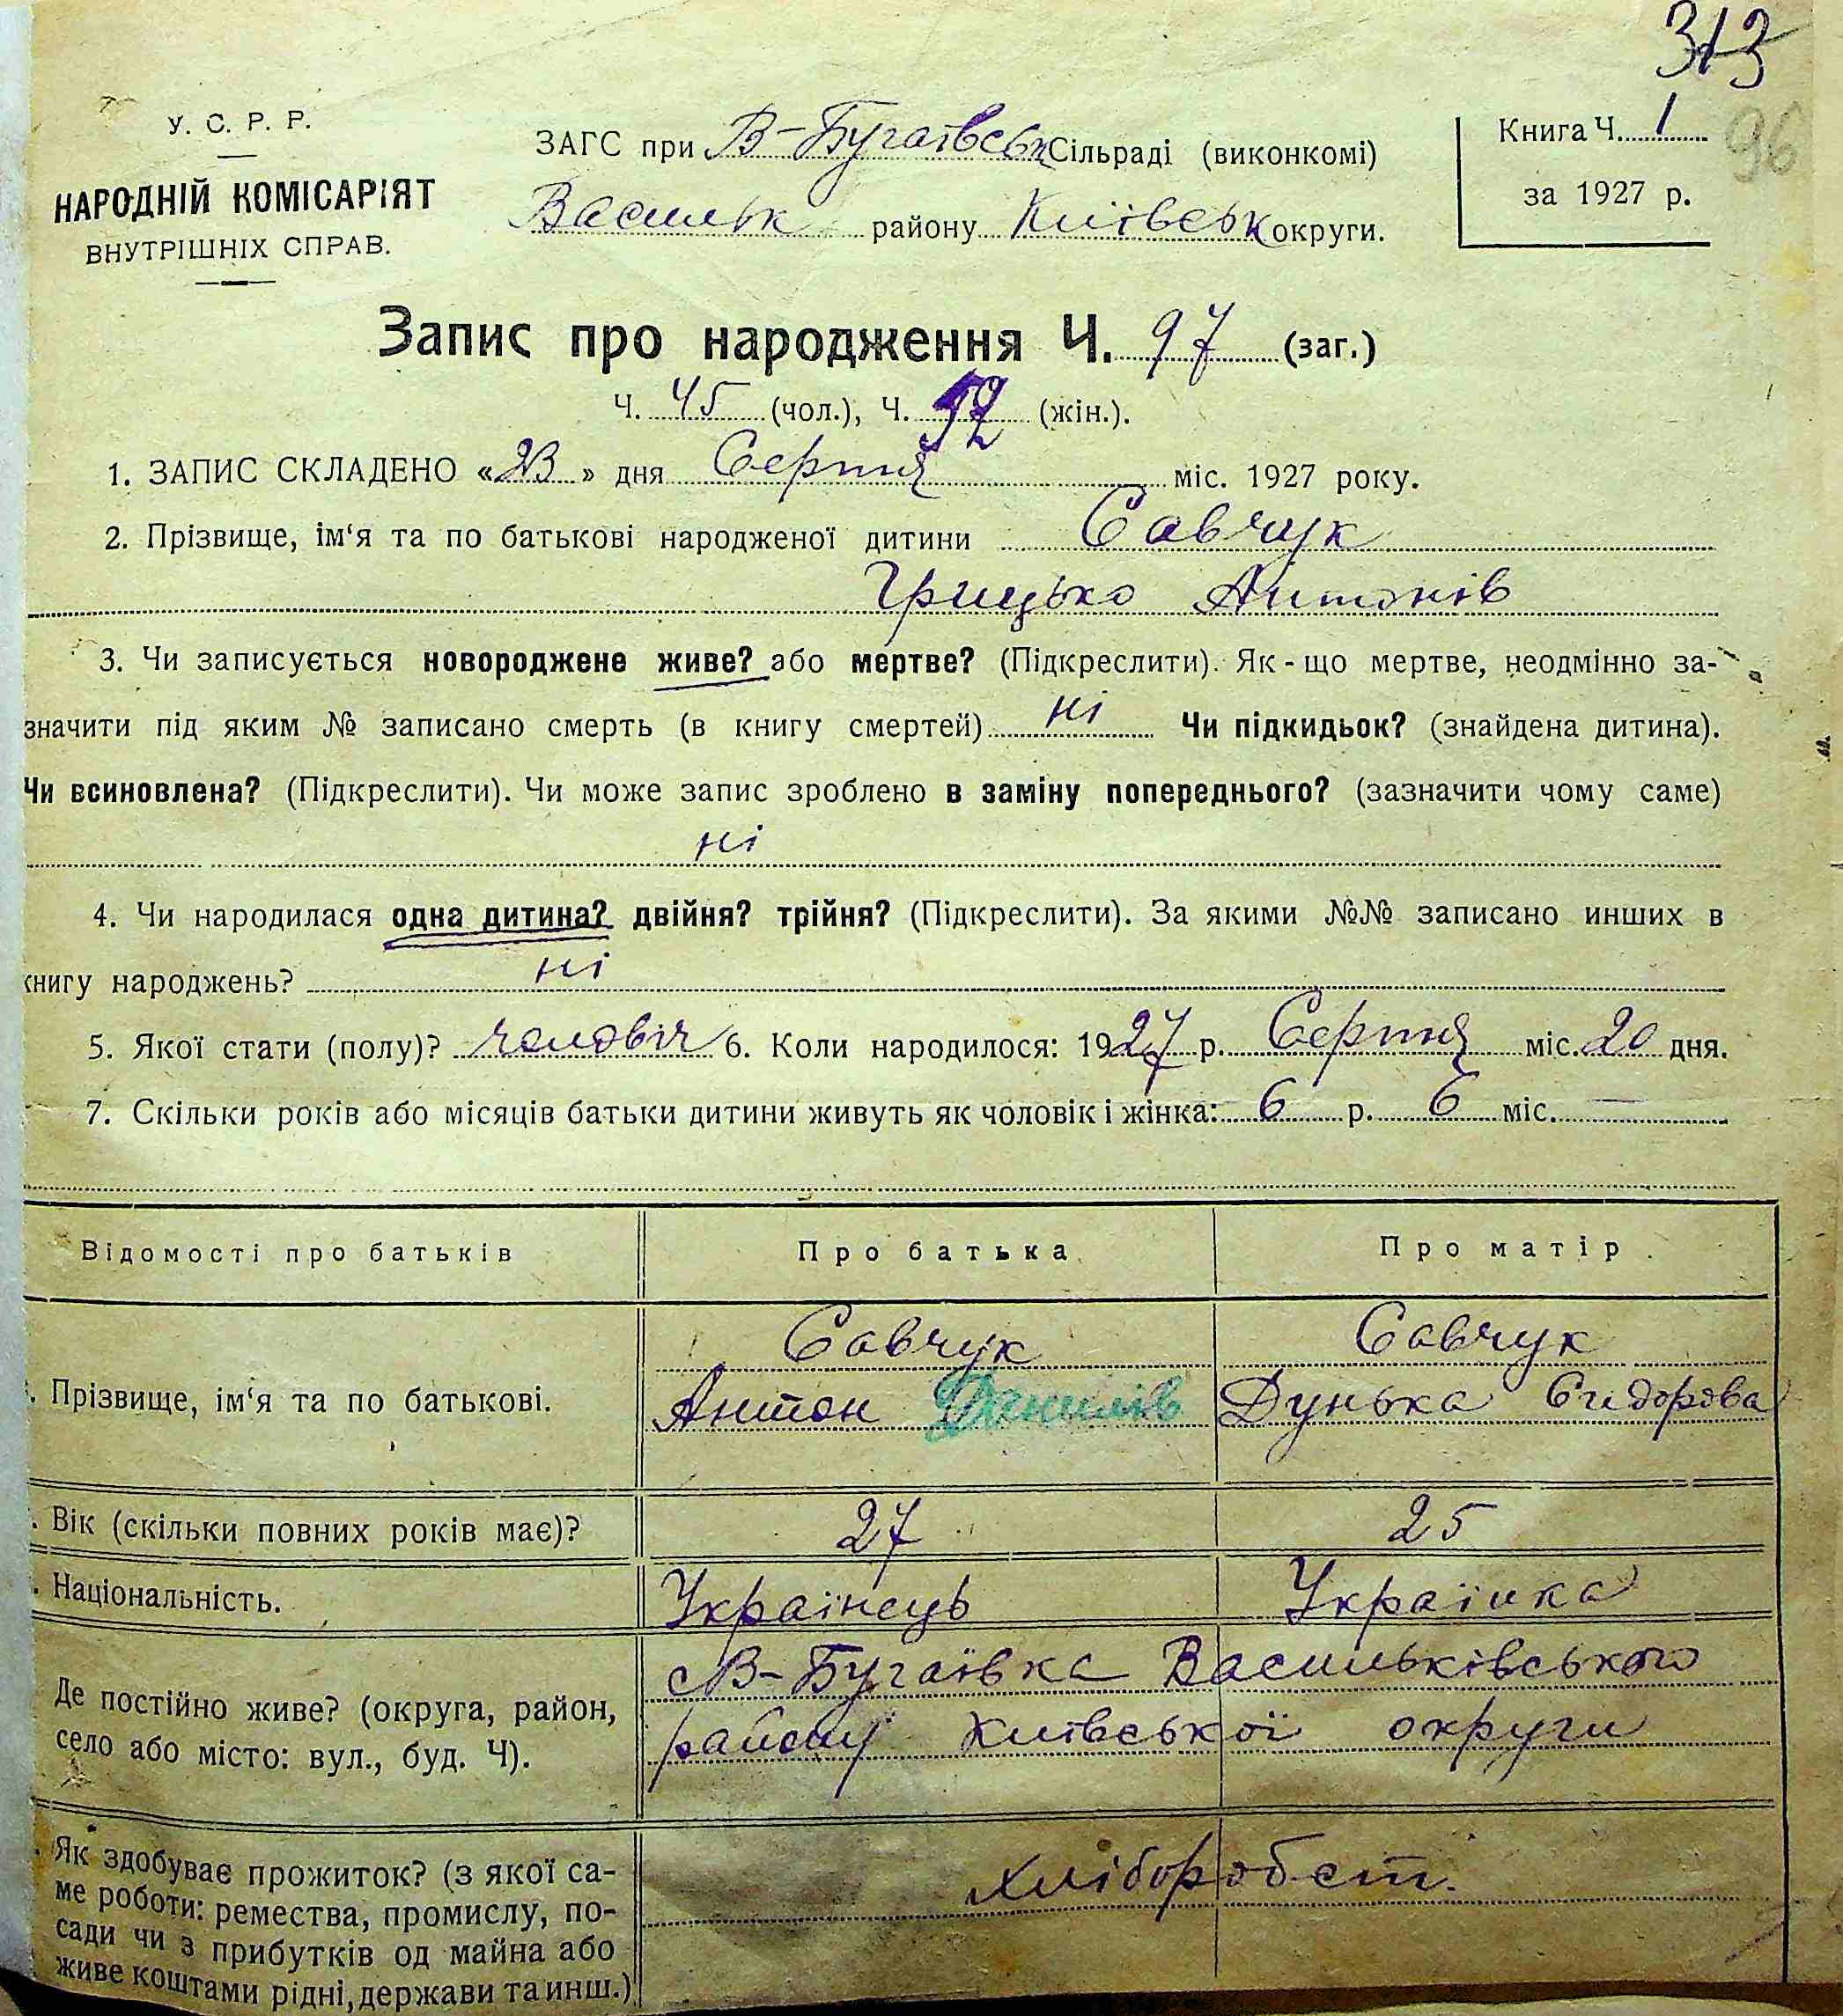 313
96
У. С. Р. Р.
НАРОДНІЙ КОМІСАРІЯТ
ВНУТРІШНІХ СПРАВ.
ЗАГС при В-Бугаївськ Сільраді (виконкомі)
Васильк району Київськ округи.
Книга Ч. 1
за 1927 р.
Запис про народження Ч. 97 (заг.)
Ч. 45 (чол.), Ч. 52 (жін.).
1. ЗАПИС СКЛАДЕНО «23» дня Серпня міс. 1927 року.
2. Прізвище, ім‘я та по батькові народженої дитини Савчук
Грицько Антонів
3. Чи записується новороджене живе? або мертве? (Підкреслити). Як-що мертве, неодмінно за-
значити під яким № записано смерть (в книгу смертей) ні Чи підкидьок? (знайдена дитина).
Чи всиновлена? (Підкреслити). Чи може запис зроблено в заміну попереднього? (зазначити чому саме)
ні
4. Чи народилася одна дитина? двійня? трійня? (Підкреслити). За якими №№ записано инших в
книгу народжень? ні
5. Якої стати (полу)? чоловіч 6. Коли народилося: 1927 р. Серпня міс. 20 дня.
7. Скільки років або місяців батьки дитини живуть як чоловік і жінка: 6 р. 6 міс.
Відомості про батьків Про батька Про матір
Савчук Савчук
Прізвище, ім‘я та по батькові. Антон Данилів Дунька Сидорова
Вік (скільки повних років має)? 27 25
Національність. Українець Українка
Де постійно живе? (округа, район, В-Бугаївка Васильківського
село або місто: вул., буд. Ч). району Київської округи
Як здобуває прожиток? (з якої са- хліборобст.
ме роботи: ремества, промислу, по-
сади чи з прибутків од майна або
живе коштами рідні, держави та инш.)